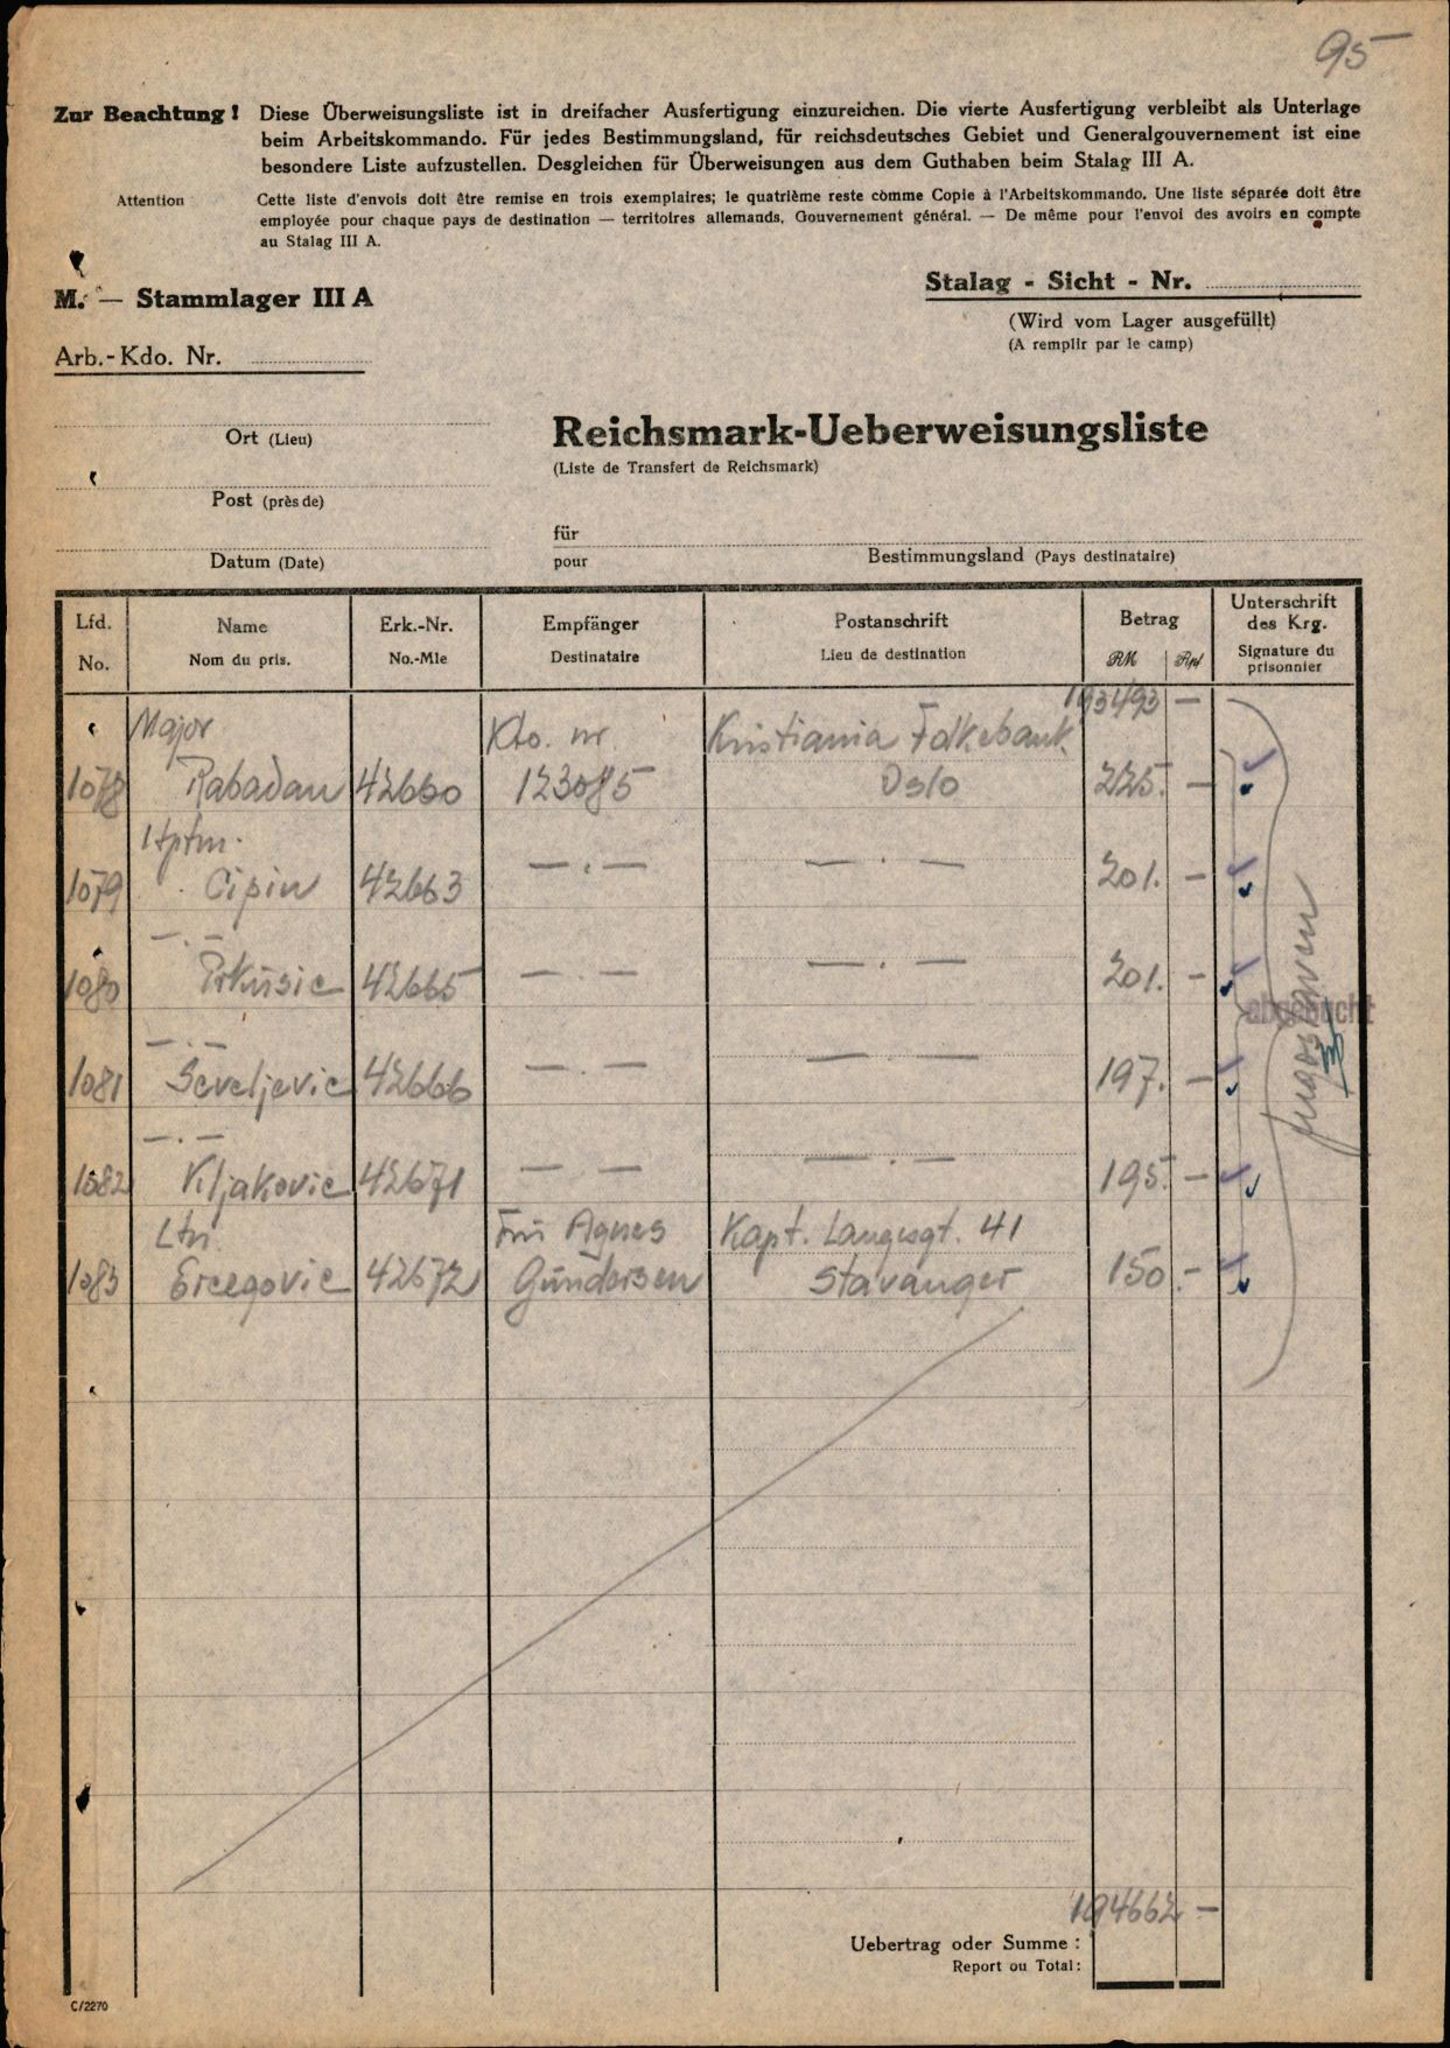 95
Zur Beachtung! Diese Überweisungsliste ist in dreifacher Ausfertigung einzureichen. Die vierte Ausfertigung verbleibt als Unterlage
beim Arbeitskommando. Für jedes Bestimmungsland, für reichsdeutsches Gebiet und Generalgouvernement ist eine
besondere Liste aufzustellen. Desgleichen für Überweisungen aus dem Guthaben beim Stalag III A.
Attention Cette liste d'envois doit être remise en trois exemplaires; le quatrième reste comme Copie à l'Arbeitskommando. Une liste séparée doit être
employée pour chaque pays de destination — territoires allemands, Gouvernement général. — De même pour l'envoi des avoirs en compte
au Stalag III A.
M. — Stammlager III A
Stalag - Sicht - Nr.
(Wird vom Lager ausgefüllt)
(A remplir par le camp)
Arb.-Kdo. Nr.
Ort (Lieu)
Reichsmark-Ueberweisungsliste
(Liste de Transfert de Reichsmark)
Post (près de)
für
pour
Bestimmungsland (Pays destinataire)
Datum (Date)
Lfd. Name Erk.-Nr. Empfänger Postanschrift Betrag Unterschrift des Krg.
No. Nom du pris. No.-Mle Destinataire Lieu de destination RM Rpf Signature du prisonnier
193493 —
Major Kto. nr. Kristiania Folkebank
1078 Rabadan 42660 123085 Oslo 225. —
Hptm.
1079 Cipin 42663 — . — — . — 201. —
— . —
1080 Prkusic 42665 — . — — . — 201. —
— . —
1081 Seveljevic 42666 — . — — . — 197. —
— . —
1082 Kljakovic 42671 — . — — . — 195. —
Ltn. Fru Agnes Kapt. Langesgt. 41
1083 Ercegovic 42672 Gundersen Stavanger 150. —
abgebucht
Jugoslaven
194662 —
Uebertrag oder Summe :
Report ou Total :
C/2270